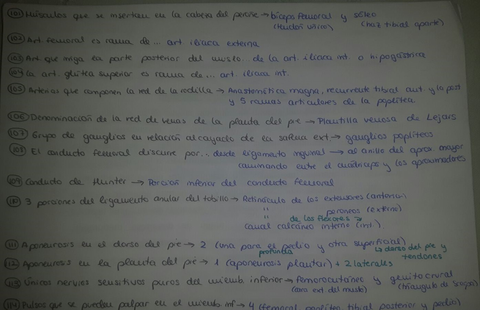 101 Músculos que se insertan en la cabeza del peroné → bíceps femoral y sóleo
(tendón común) (haz tibial aparte)
102 Art. femoral es rama de... art ilíaca externa
103 Art. que irriga la parte posterior del muslo... de la art. ilíaca int. o hipogástrica
104 La art. glútea superior es rama de... art ilíaca int.
105 Arterias que componen la red de la rodilla → Anastomótica magna, recurrente tibial ant y la post
y 5 ramas articulares de la poplítea
106 Denominación de la red de venas de la planta del pie → Plantilla venosa de Lejars
107 Grupo de ganglios en relación al cayado de la safena ext → ganglios poplíteos
108 El conducto femoral discurre por... desde ligamento inguinal → al anillo del aprox. mayor
caminando entre el cuádriceps y los aproximadores
109 Conducto de Hunter → Porción inferior del conducto femoral
110 3 porciones del ligamento anular del tobillo → Retináculo de los extensores (anterior)
" peroneos (externo)
" de los flexores →
canal calcáneo interno (int.)
111 Aponeurosis en el dorso del pie → 2 (una para el pedio y otra superficial)
profunda → dorso del pie y
tendones
112 Aponeurosis en la planta del pie → 1 (aponeurosis plantar) + 2 laterales
113 Únicos nervios sensitivos puros del miembro inferior → femorocutáneo y genitocrural
(cara ext del muslo) (triángulo de Scarpa)
114 Pulsos que se pueden palpar en el miembro inf → 4 (femoral, poplíteo, tibial posterior y pedio)